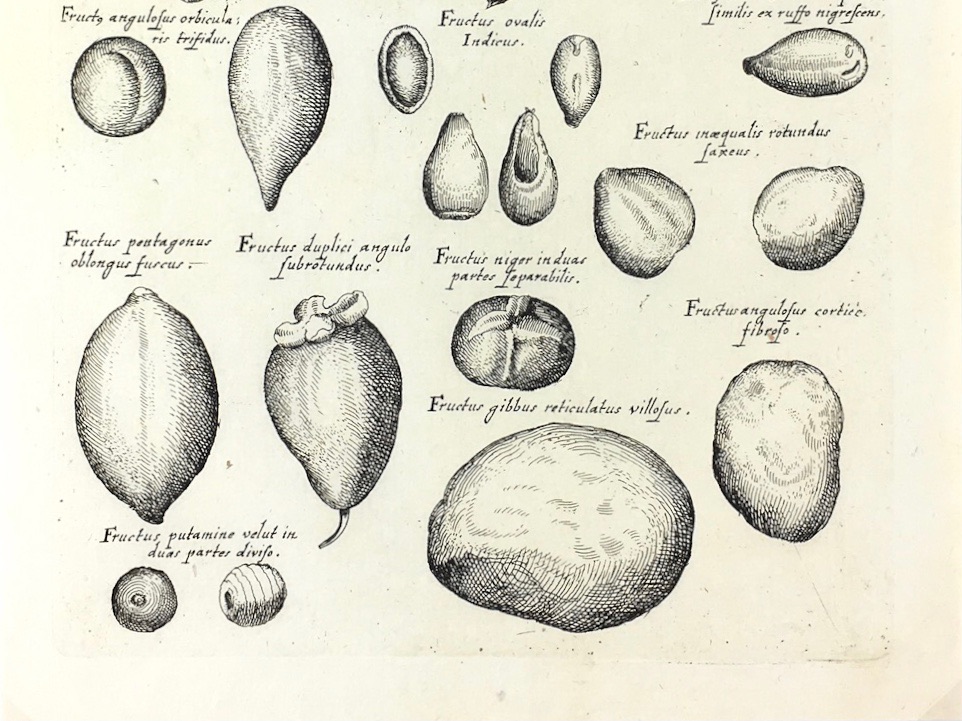 Fructꝰ angulosus orbicula:
ris trifidus.
Fructus ovalis
Indicus.
similis ex ruffo nigrescens.
Fructus inæqualis rotundus
saxeus.
Fructus pentagonus
oblongus fuscus.
Fructus duplici angulo
subrotundus.
Fructus niger in duas
partes separabilis.
Fructus angulosus cortice
fibroso.
Fructus gibbus reticulatus villosus.
Fructus putamine velut in
duas partes diviso.